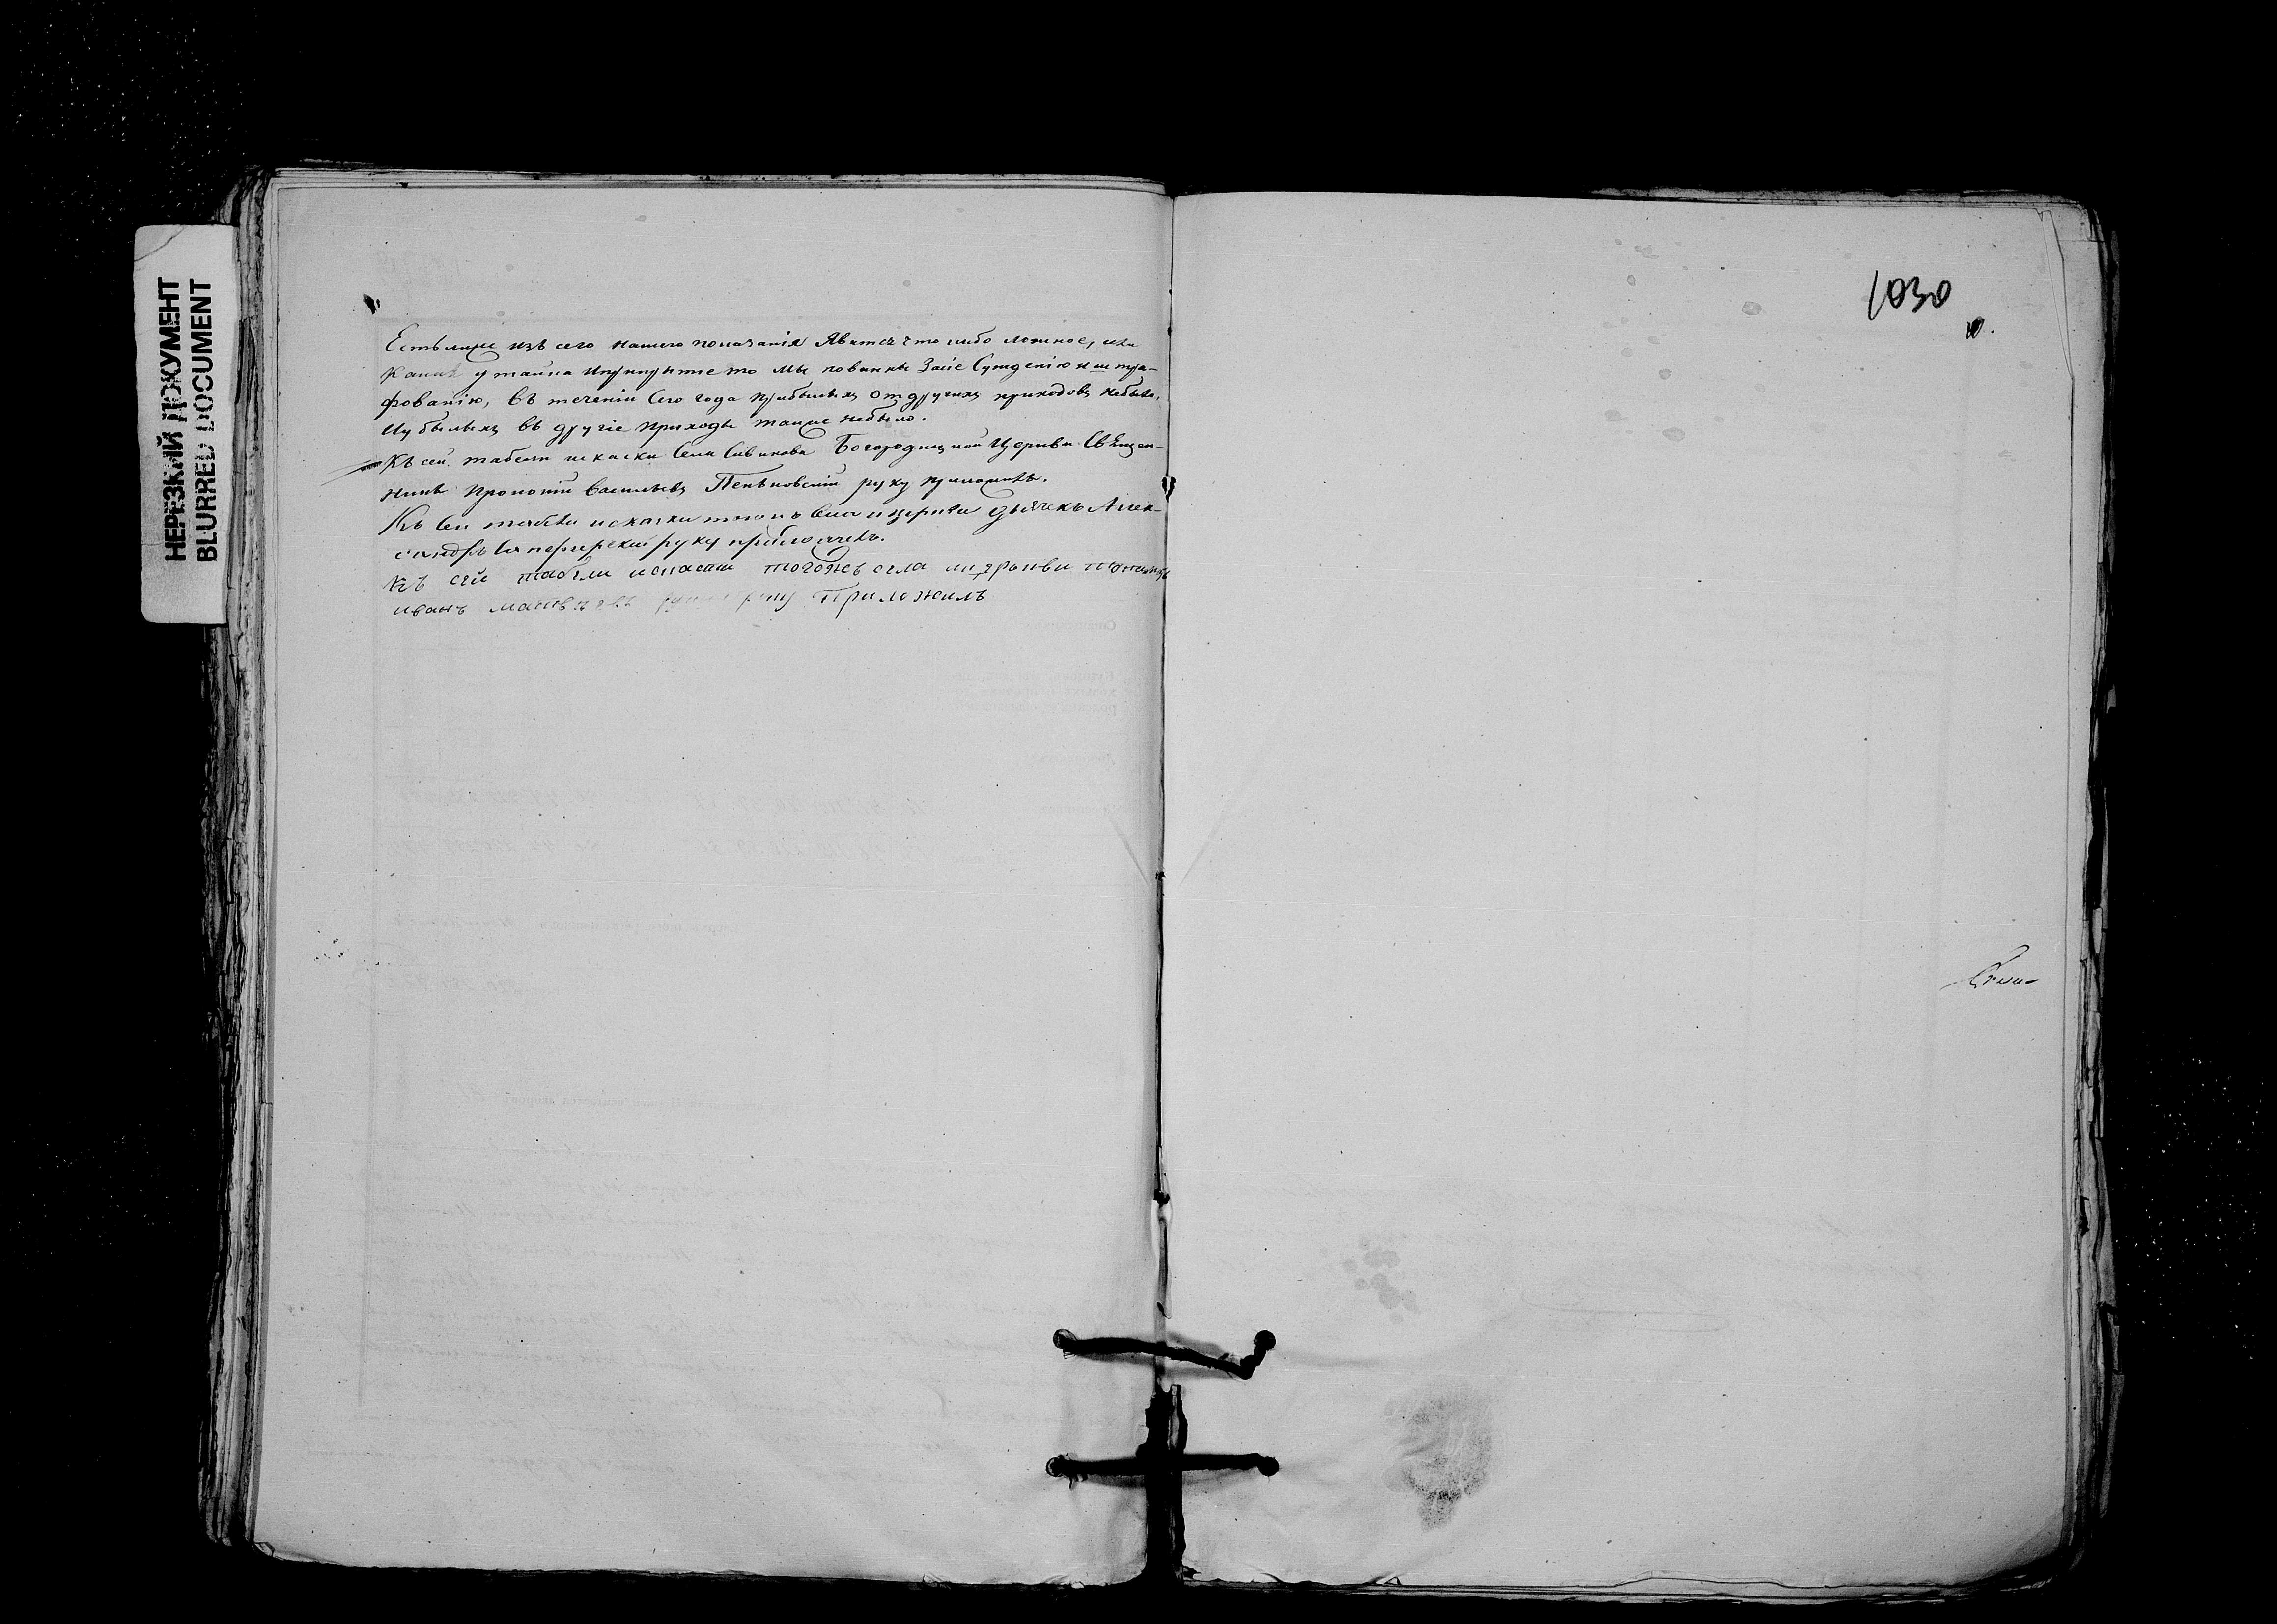 НЕРЕЗКИЙ ДОКУМЕНТ
BLURRED DOCUMENT
Естьлиже изъ сего нашего показанія Явится что либо ложное, или
Какая утайка иприкрытіе то Мы повинны Засіе Сужденію и штра-
фованію, въ теченіи Сего года прибылыхъ отдругихъ приходовъ небыло,
Иубылыхъ въ другіе приходы также небыло.
Къ сей табели искаски Села Сивинова Богородицкой Церкви Священ-
никъ Прокопій Васильевъ Пеньковскій руку приложилъ.
Къ сей табели искаски тогожъ села ицеркви дьячекъ Алек-
сандръ руку приложилъ.
Къ сей табели искаски тогожъ села ицеркви пономарь
иванъ матвѣевъ руку Приложилъ
1030